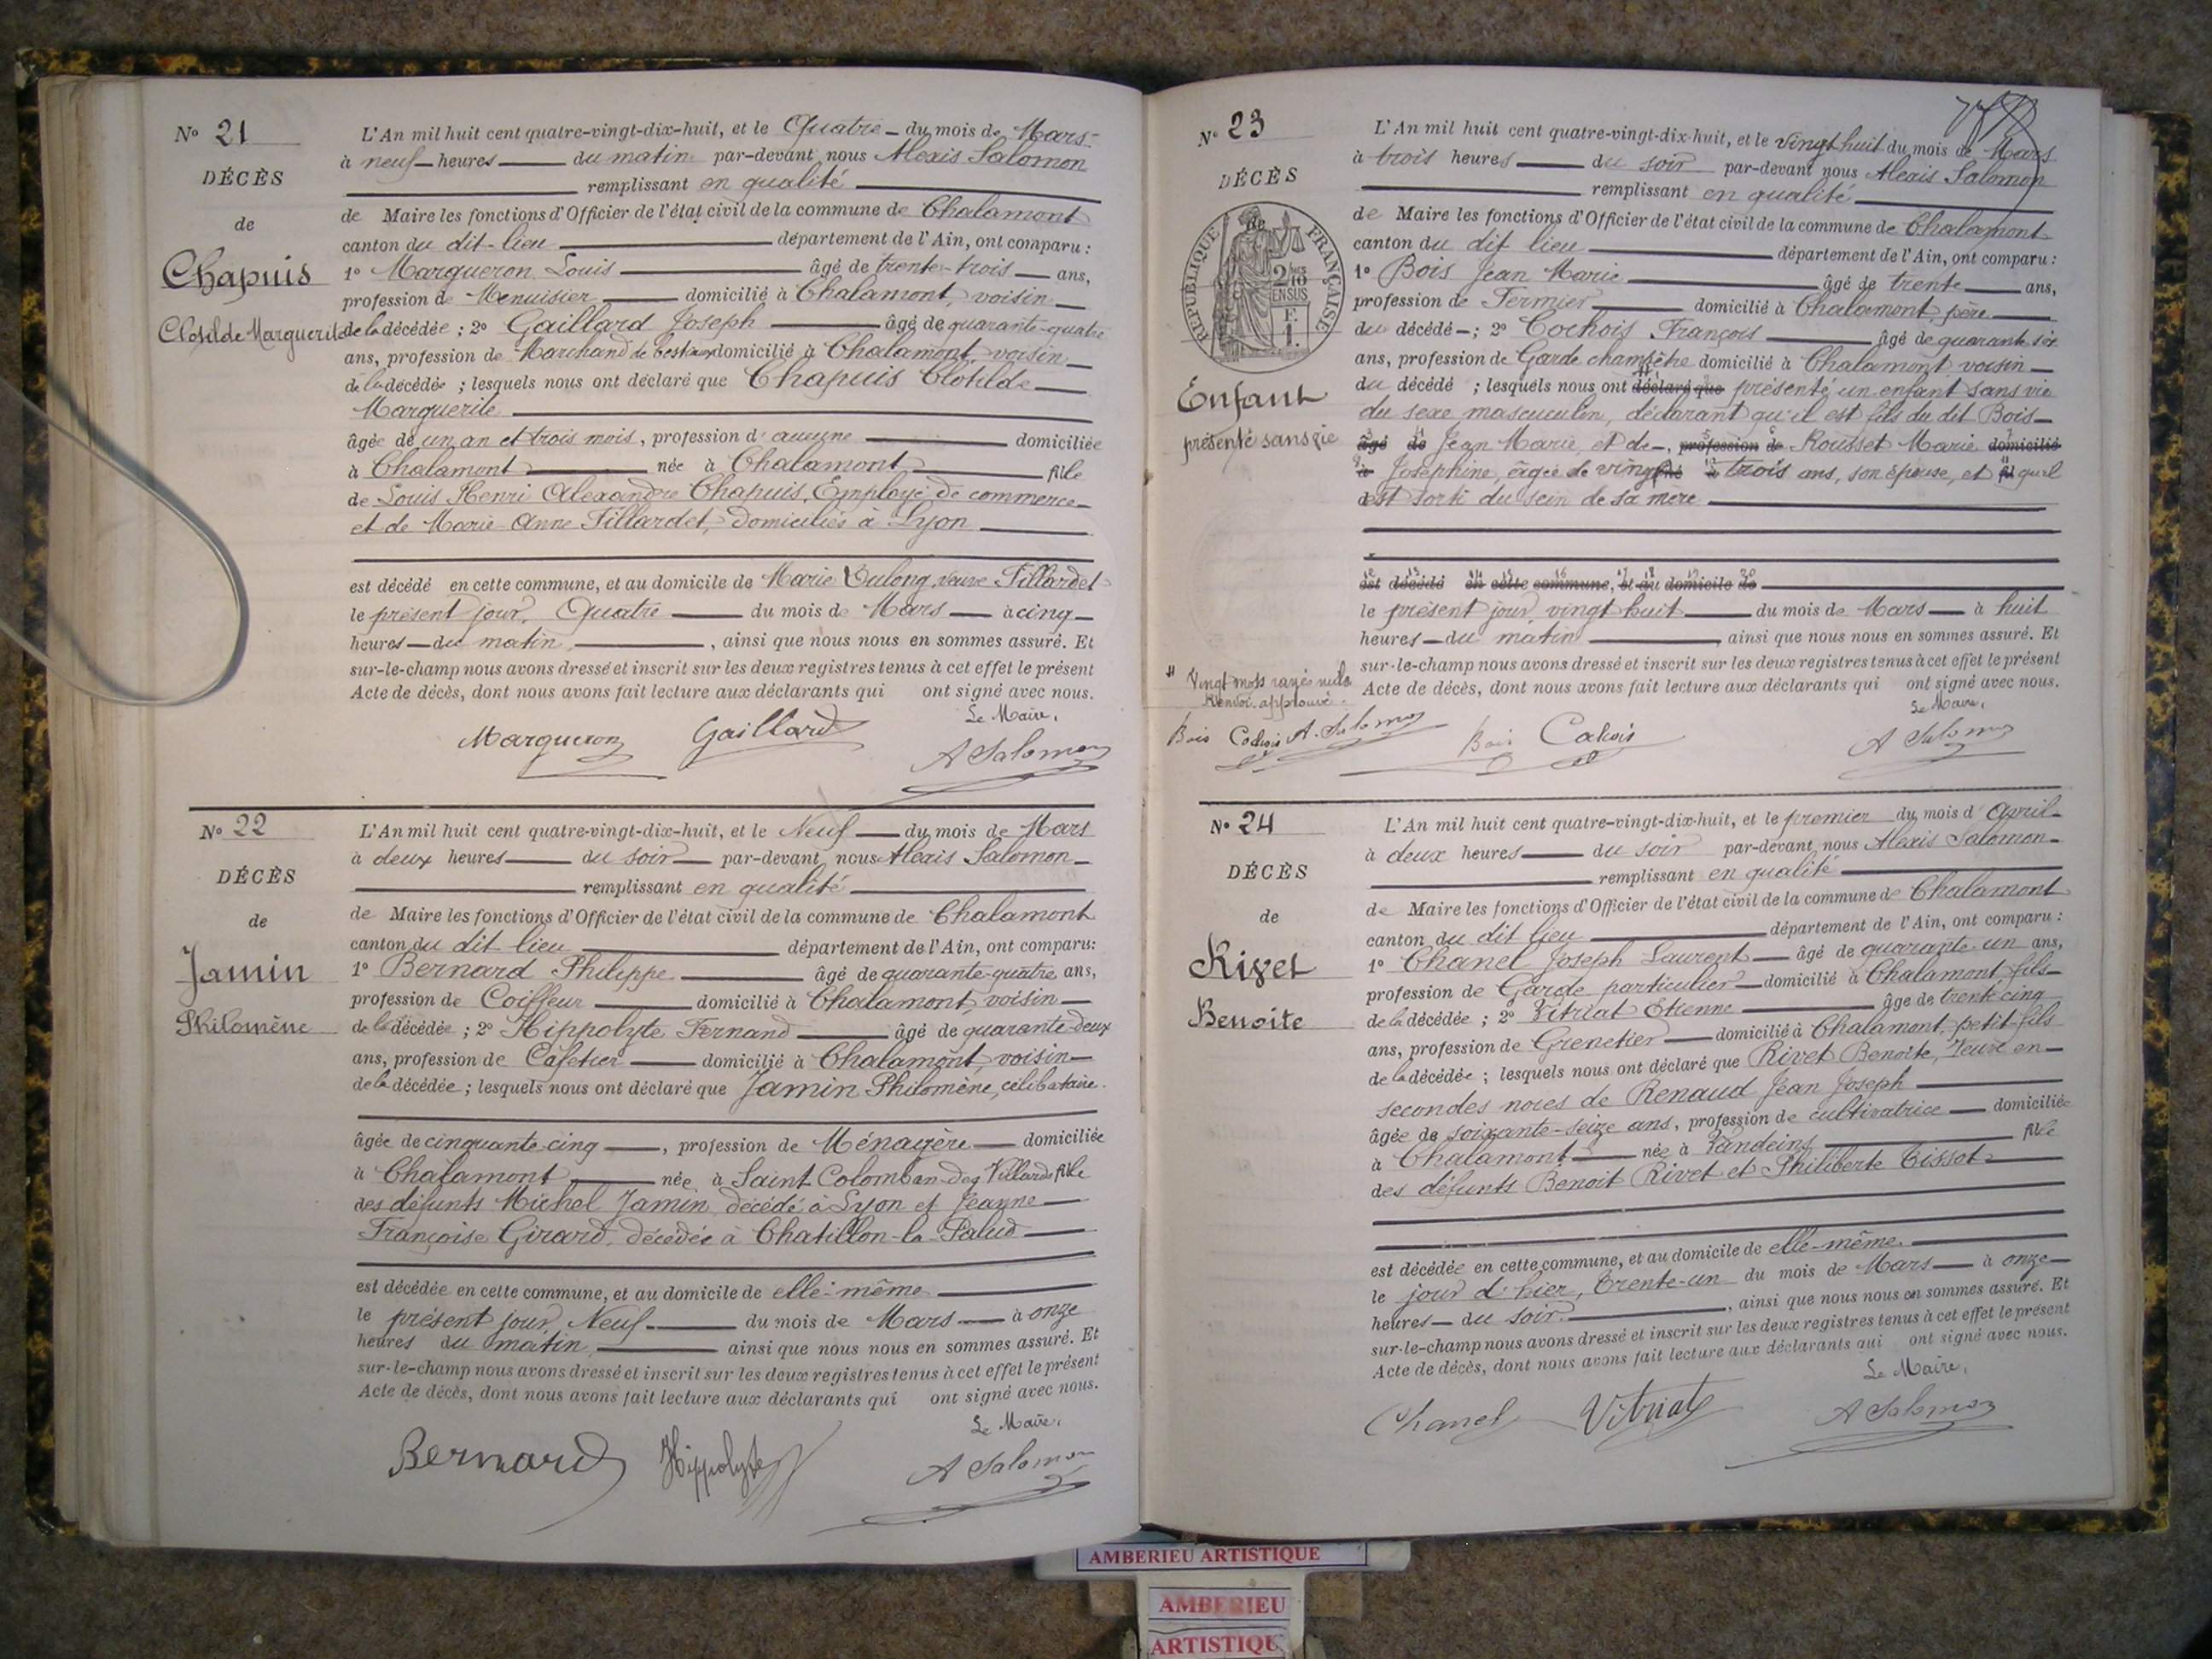 N° 21
DÉCÈS
de
Chapuis
Clotilde Marguerite
L'An mil huit cent quatre-vingt-dix-huit, et le Quatre du mois de Mars
à neuf heures du matin par-devant nous Alexis Salomon
remplissant en qualité
de Maire les fonctions d'Officier de l'état civil de la commune de Chalamont
canton du dit-lieu département de l'Ain, ont comparu :
1° Margueron Louis âgé de trente-trois ans,
profession de Menuisier domicilié à Chalamont, voisin
de la décédée ; 2° Gaillard Joseph âgé de quarante-quatre
ans, profession de Marchand de bestiaux domicilié à Chalamont, voisin
de la décédée ; lesquels nous ont déclaré que Chapuis Clotilde
Marguerite
âgée de un an et trois mois, profession d'aucune domiciliée
à Chalamont née à Chalamont fille
de Louis Henri Alexandre Chapuis, Employé de commerce
et de Marie-Anne Tillardet, domiciliés à Lyon
est décédé en cette commune, et au domicile de Marie Dulong, veuve Tillardet
le présent jour, Quatre du mois de Mars à cinq
heures du matin, ainsi que nous nous en sommes assuré. Et
sur-le-champ nous avons dressé et inscrit sur les deux registres tenus à cet effet le présent
Acte de décès, dont nous avons fait lecture aux déclarants qui ont signé avec nous.
Le Maire,
Margueron Gaillard A Salomon
N° 22
DÉCÈS
de
Jamin
Philomène
L'An mil huit cent quatre-vingt-dix-huit, et le Neuf du mois de Mars
à deux heures du soir par-devant nous Alexis Salomon
remplissant en qualité
de Maire les fonctions d'Officier de l'état civil de la commune de Chalamont
canton du dit lieu département de l'Ain, ont comparu:
1° Bernard Philippe âgé de quarante-quatre ans,
profession de Coiffeur domicilié à Chalamont, voisin
de la décédée ; 2° Hippolyte Fernand âgé de quarante-deux
ans, profession de Cafetier domicilié à Chalamont, voisin
de la décédée ; lesquels nous ont déclaré que Jamin Philomène, célibataire.
âgée de cinquante-cinq, profession de Ménagère domiciliée
à Chalamont née à Saint Colomban-des Villards fille
des défunts Michel Jamin, décédé à Lyon et Jeanne
Françoise Girard, décédée à Chatillon-la-Palud
est décédée en cette commune, et au domicile de elle-même
le présent jour, Neuf du mois de Mars à onze
heures du matin, ainsi que nous nous en sommes assuré. Et
sur-le-champ nous avons dressé et inscrit sur les deux registres tenus à cet effet le présent
Acte de décès, dont nous avons fait lecture aux déclarants qui ont signé avec nous.
Le Maire,
Bernard Hippolyte A Salomon
N° 23
DÉCÈS
de
RÉPUBLIQUE FRANÇAISE
2/10
EN SUS
F.
1.
Enfant
présenté sans vie
L'An mil huit cent quatre-vingt-dix-huit, et le vingt huit du mois de Mars
à trois heures du soir par-devant nous Alexis Salomon
remplissant en qualité
de Maire les fonctions d'Officier de l'état civil de la commune de Chalamont
canton du dit lieu département de l'Ain, ont comparu :
1° Bois Jean Marie âgé de trente ans,
profession de Fermier domicilié à Chalamont, père
du décédé ; 2° Cochois François âgé de quarante six
ans, profession de Garde champêtre domicilié à Chalamont voisin
du décédé ; lesquels nous ont déclaré que présenté un enfant sans vie
du sexe mascuculin, déclarant qu'il est fils du dit Bois
âgé de Jean Marie, et de, profession de Rousset Marie domicilié
à Joséphine, âgée de vingt trois ans, son épouse, et quel
est sorti du sein de sa mère
est décédé en cette commune, et au domicile de
le présent jour, vingt huit du mois de Mars à huit
heures du matin ainsi que nous nous en sommes assuré. Et
sur-le-champ nous avons dressé et inscrit sur les deux registres tenus à cet effet le présent
Acte de décès, dont nous avons fait lecture aux déclarants qui ont signé avec nous.
Le Maire,
Vingt mots rayés nuls
Renvoi approuvé.
Bois Cochois A. Salomon
Bois Cochois A Salomon
N° 24
DÉCÈS
de
Rivet
Benoite
L'An mil huit cent quatre-vingt-dix-huit, et le premier du mois d'Avril
à deux heures du soir par-devant nous Alexis Salomon
remplissant en qualité
de Maire les fonctions d'Officier de l'état civil de la commune de Chalamont
canton du dit lieu département de l'Ain, ont comparu :
1° Chanel Joseph Laurent âgé de quarante-un ans,
profession de Garde particulier domicilié à Chalamont, fils
de la décédée ; 2° Vitriat Etienne âgé de trente cinq
ans, profession de Grenetier domicilié à Chalamont, petit-fils
de la décédée ; lesquels nous ont déclaré que Rivet Benoite, Veuve en
secondes noces de Renaud Jean Joseph
âgée de soixante-seize ans, profession de cultivatrice domiciliée
à Chalamont née à Vandeins fille
des défunts Benoit Rivet et Philiberte Tissot
est décédée en cette commune, et au domicile de elle-même
le jour d'hier, trente-un du mois de Mars à onze
heures du soir, ainsi que nous nous en sommes assuré. Et
sur-le-champ nous avons dressé et inscrit sur les deux registres tenus à cet effet le présent
Acte de décès, dont nous avons fait lecture aux déclarants qui ont signé avec nous.
Le Maire,
Chanel Vitriat A Salomon
AMBERIEU ARTISTIQUE
AMBERIEU
ARTISTIQU